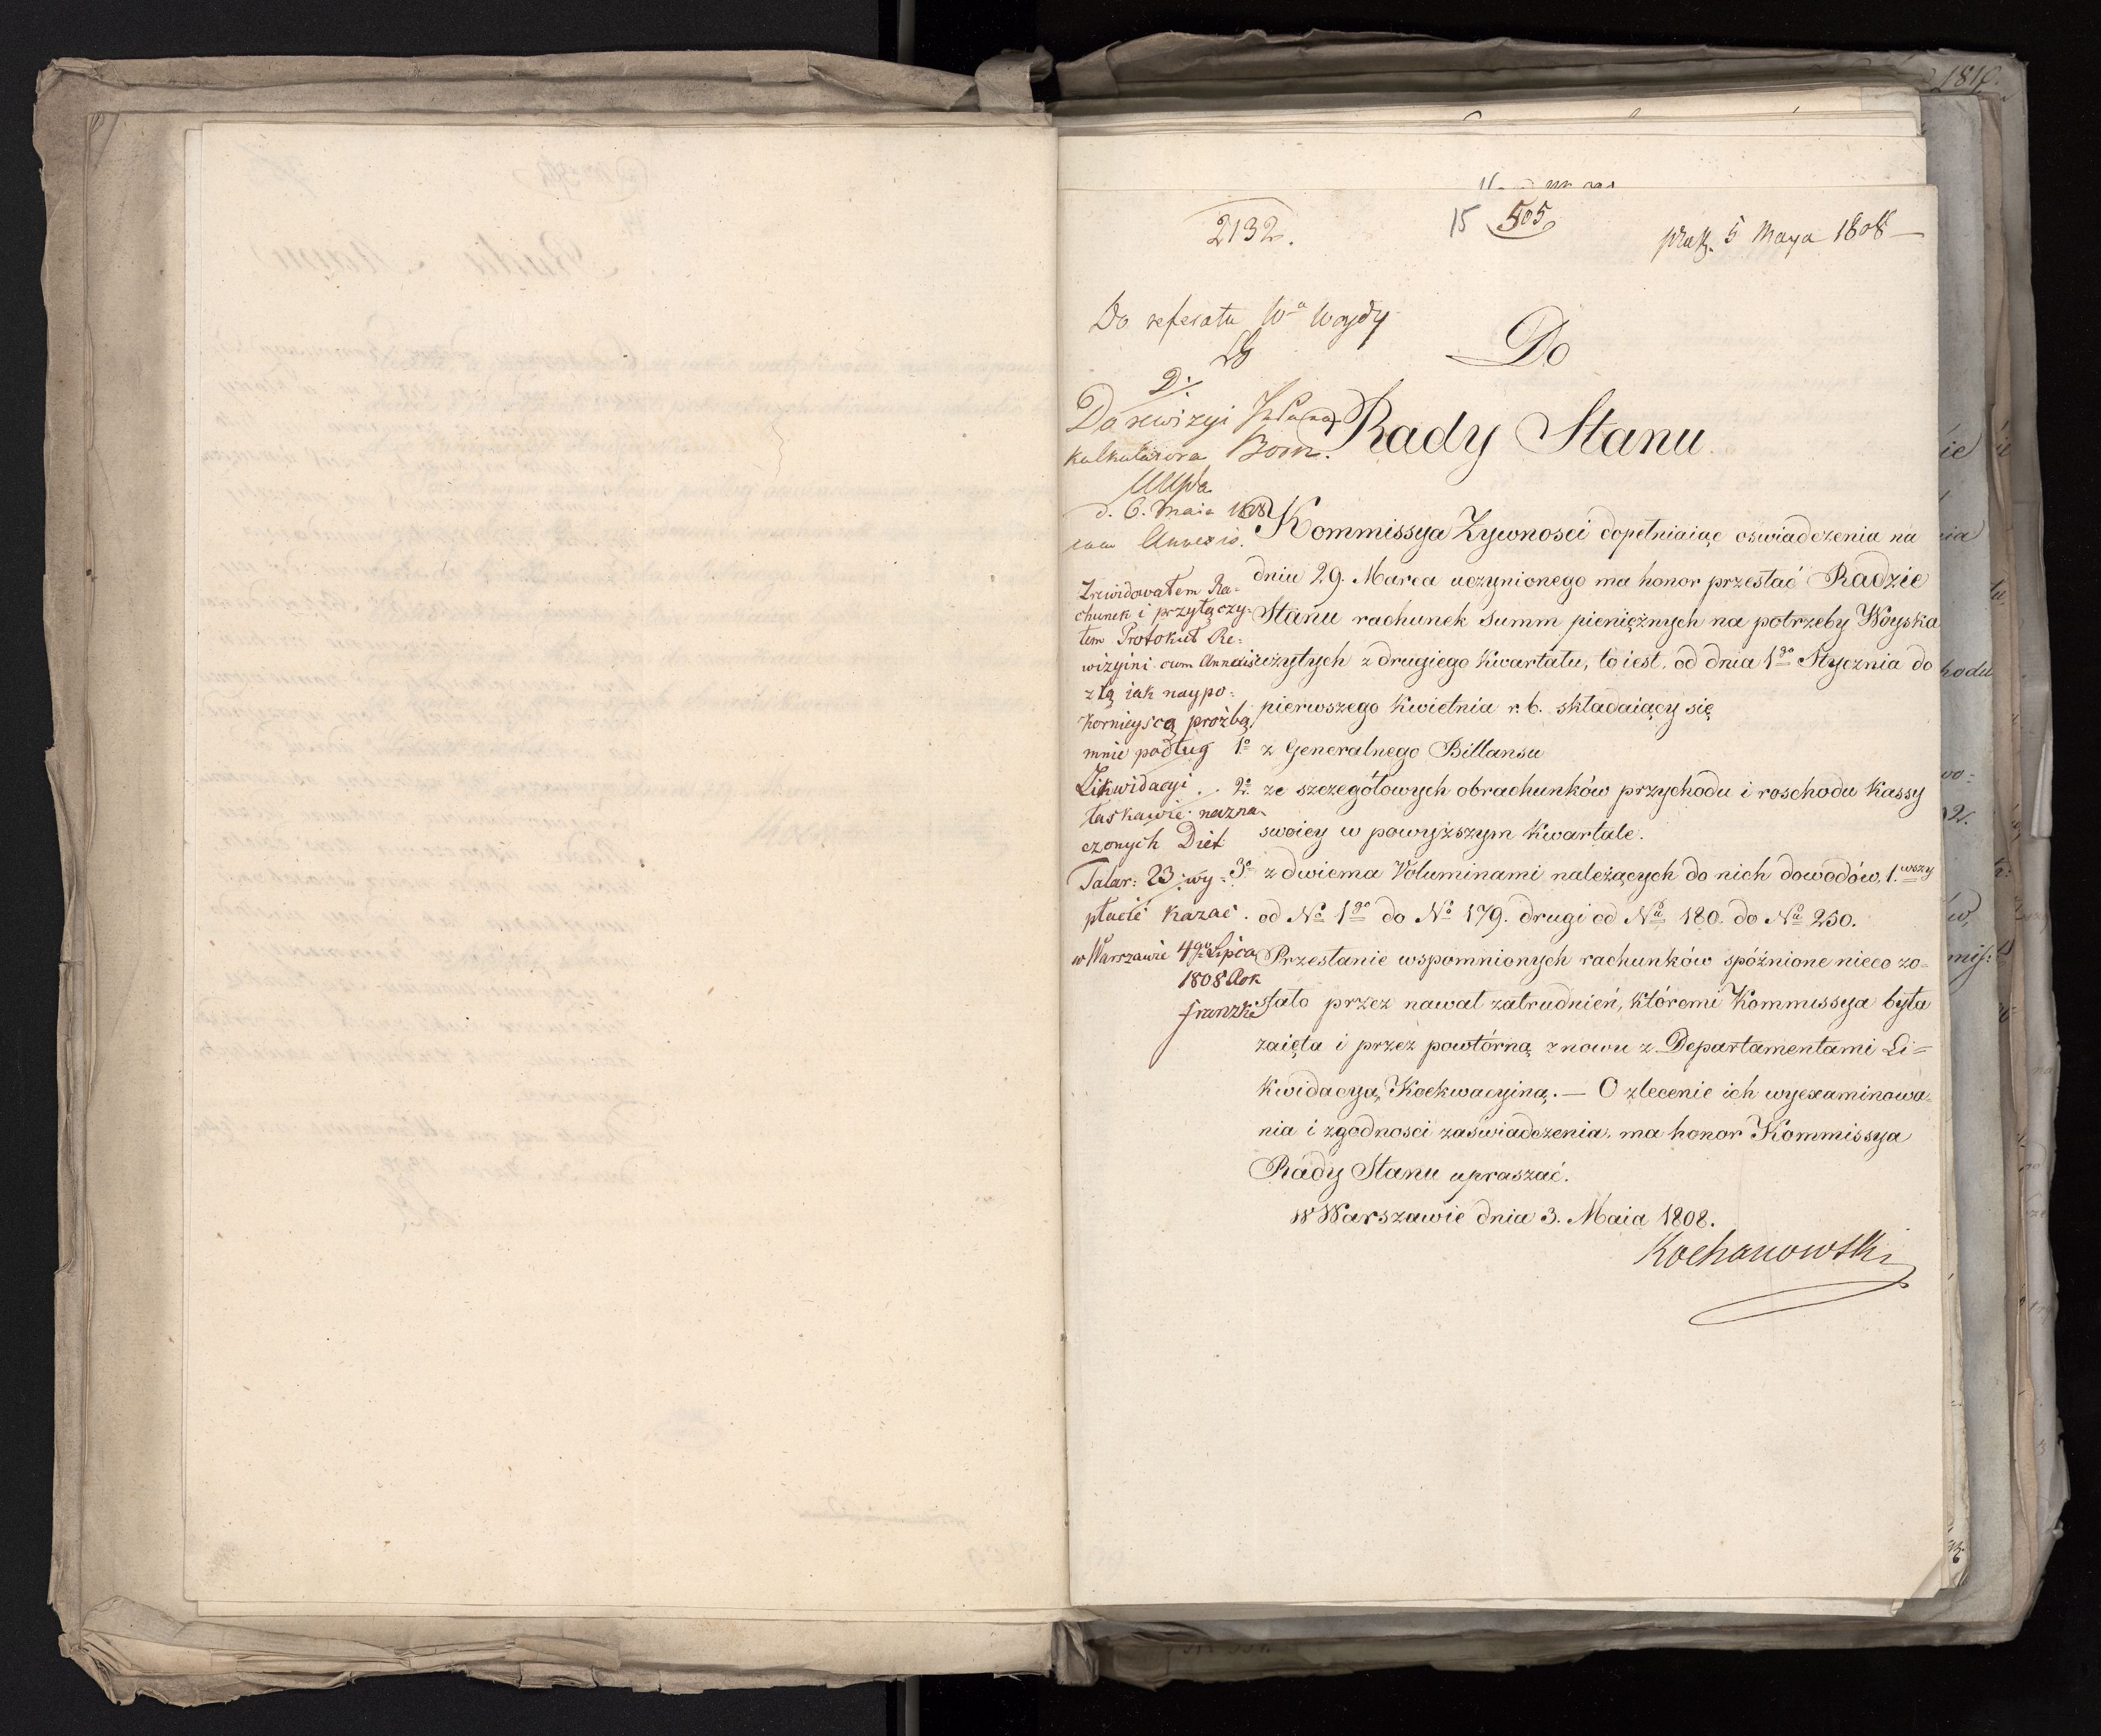 2132.
15 505
5 Maya 1808
Do referatu Wa Woydy
Do
Do rewizyi
Rady Stanu
kalkulatora
d. 6. Maia 1808
cum Annexis.
Kommissya Zywnosci dopełniaiąc oswiadczenia na
dniu 29. Marca uczynionego ma honor przesłać Radzie
Stanu rachunek Summ pieniężnych na potrzeby Woyska
użytych z drugiego Kwartału, to iest, od dnia 1go Stycznia do
pierwszego Kwietnia r. b. składaiący się
1o z Generalnego Billansu
2o ze szczegółowych obrachunków przychodu i roschodu Kassy
swoiey w powyższym Kwartale.
3o z dwiema Voluminami należących do nich dowodów, 1.wszy
od No 1go do No 179. drugi od No 180. do No 250.
Przesłanie wspomnionych rachunków spóźnione nieco zo=
stało przez nawał zatrudnień, któremi Kommissya była
zaięta i przez powtórną znowu z Departamentami Li=
kwidacyą, Koekwacyiną. — O zlecenie ich wyexaminowa=
nia i zgodnosci zaświadczenia, ma honor Kommissya
Rády Stanu upraszać.
w Warszawie dnia 3. Maia 1808.
Kochanowski
Zrewidowałem Ra=
chunek i przyłączy=
łem Protokuł Re=
wizyini cum Annexis
z tą iak naypo=
kornieyscą proźbą,
mnie podług
Likwidacyi
łaskawie nazna=
czonych Diet
Talar: 23 wy=
płacić kazać.
w Warszawie 4go Lipca
1808 Rok
Franzke
1810.